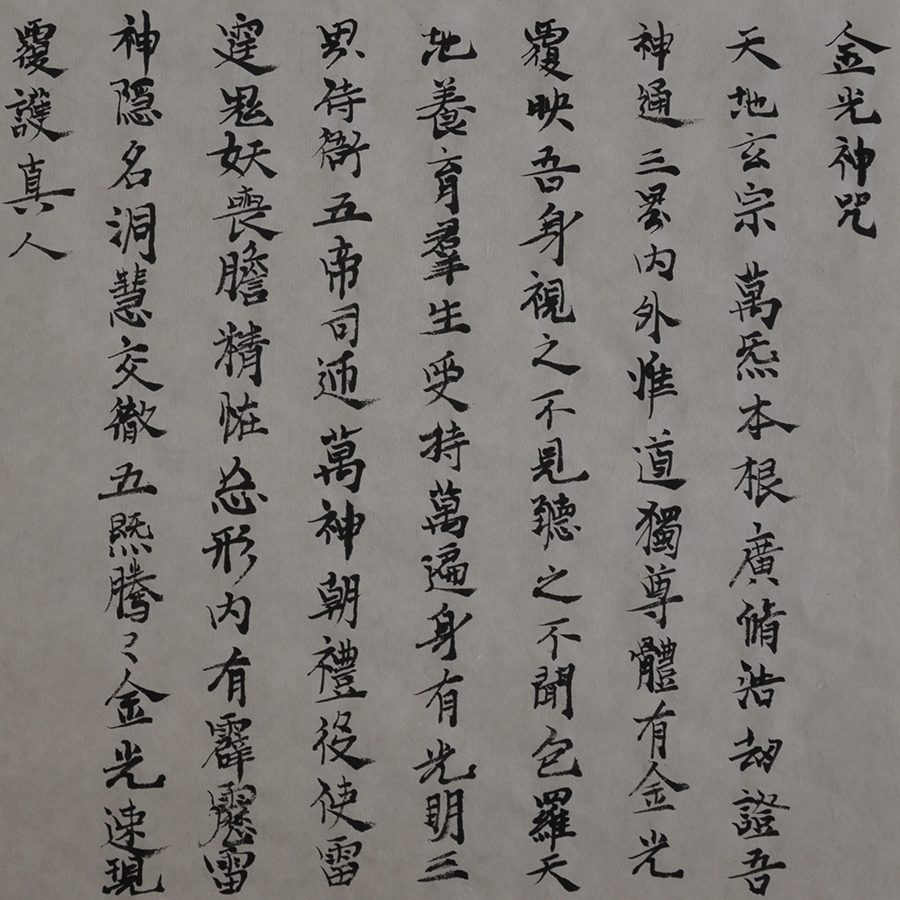 金光神咒
天地玄宗萬炁本根廣脩浩劫證吾
神通三界內外惟道獨尊體有金光
覆映吾身視之不見聽之不聞包羅天
地養育羣生受持萬遍身有光明三
界侍衛五帝司迎萬神朝禮役使雷
霆鬼妖喪膽精怪忘形內有霹靂雷
神隱名洞慧交徹五炁騰〻金光速現
覆護真人